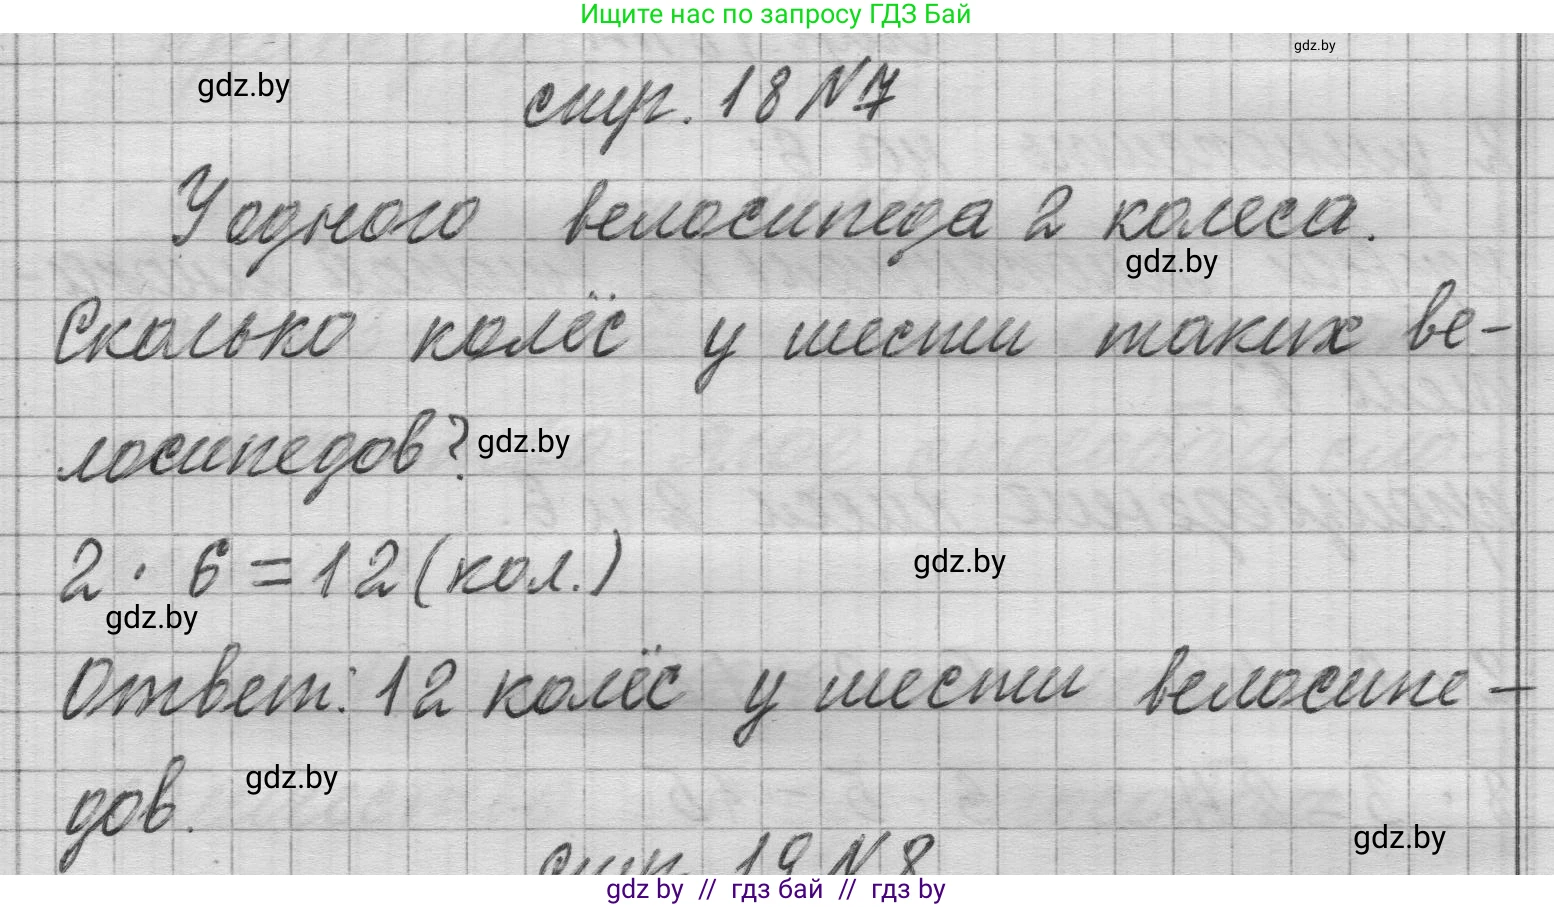 Ищите нас по запросу ГДЗ Бай
gdz.by
gdz.by
стр. 18 №7
У одного велосипеда 2 колеса.
gdz.by
Сколько колёс у шести таких ве-
лосипедов?
gdz.by
2 · 6 = 12 (кол.)
gdz.by
gdz.by
Ответ: 12 колёс у шести велосипе-
дов.
gdz.by
gdz.by
стр. 19 №8
gdz by // гдз бай // гдз by